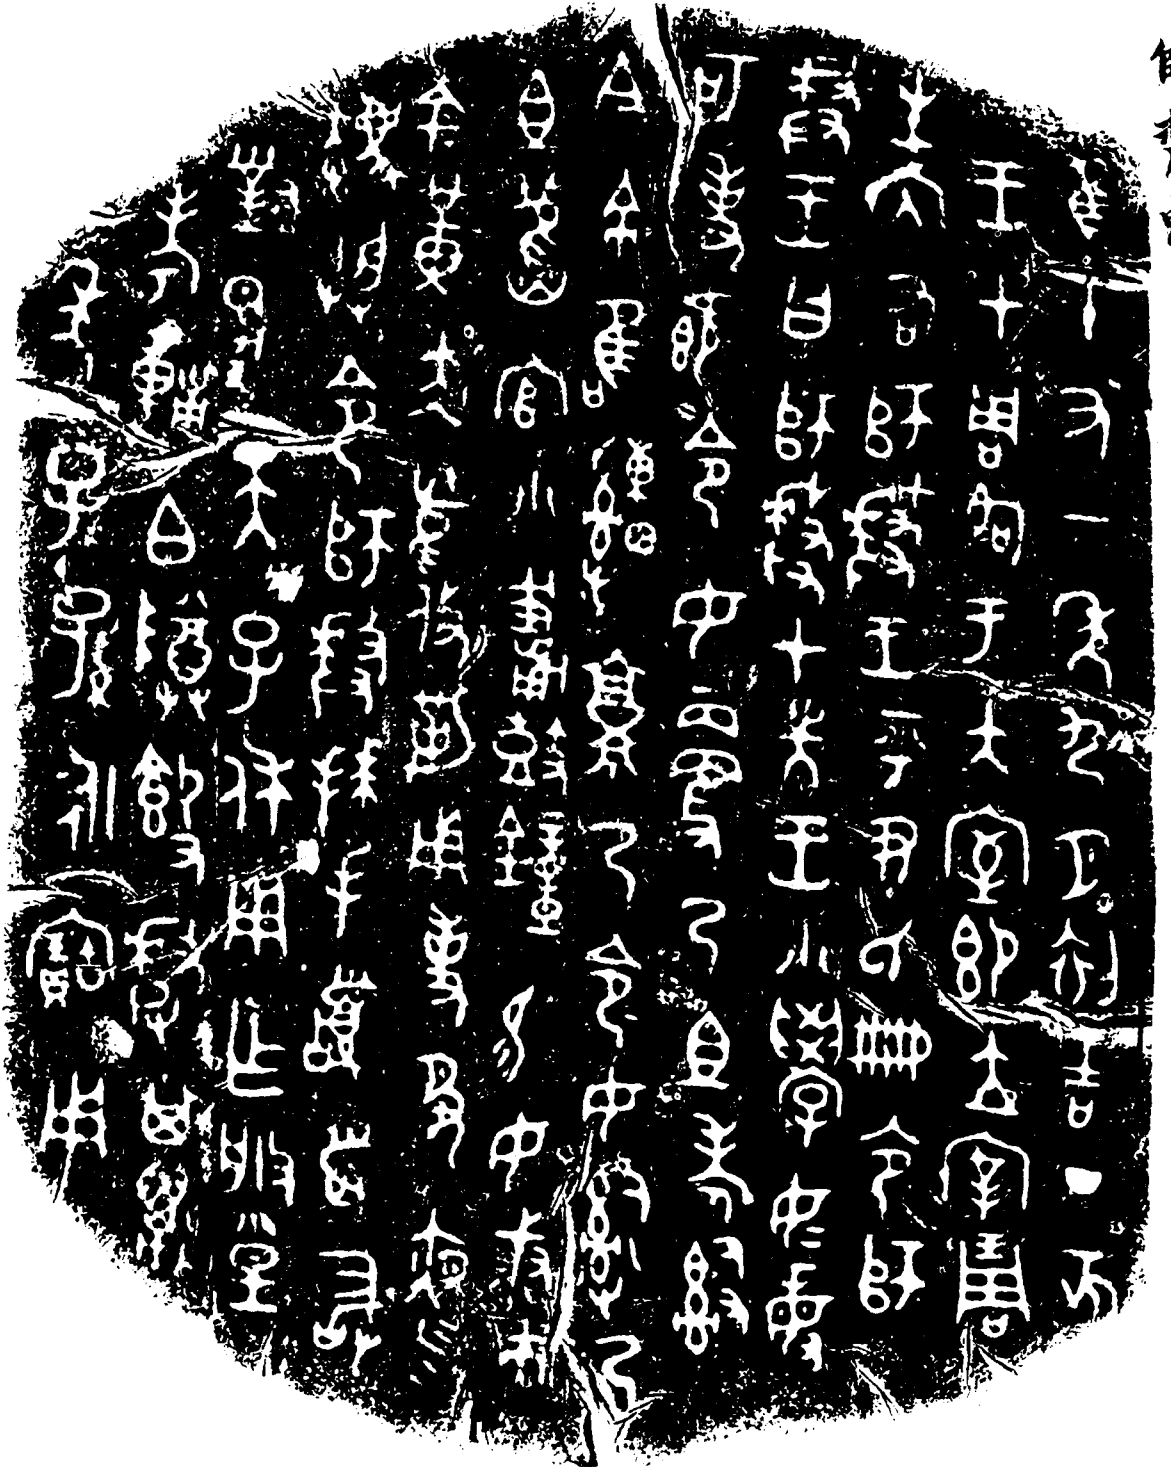 隹十又一年九月初吉丁亥
王才周各于大室即立宰琱
生內右師𠭰王乎尹氏冊令師
𠭰王曰師𠭰才先王小學女敏
可事既令女更乃且考𤔲
今余唯𤕌𩁹乃令令女𤔲乃
且舊官小輔眔鼓鐘易女叔巿
金黃赤舄攸勒用事敬夙夜勿灋
朕令師𠭰拜手稽首敢對
揚天子休用乍朕皇
考輔白尊簋𠭰其萬
年子子孫永寶用